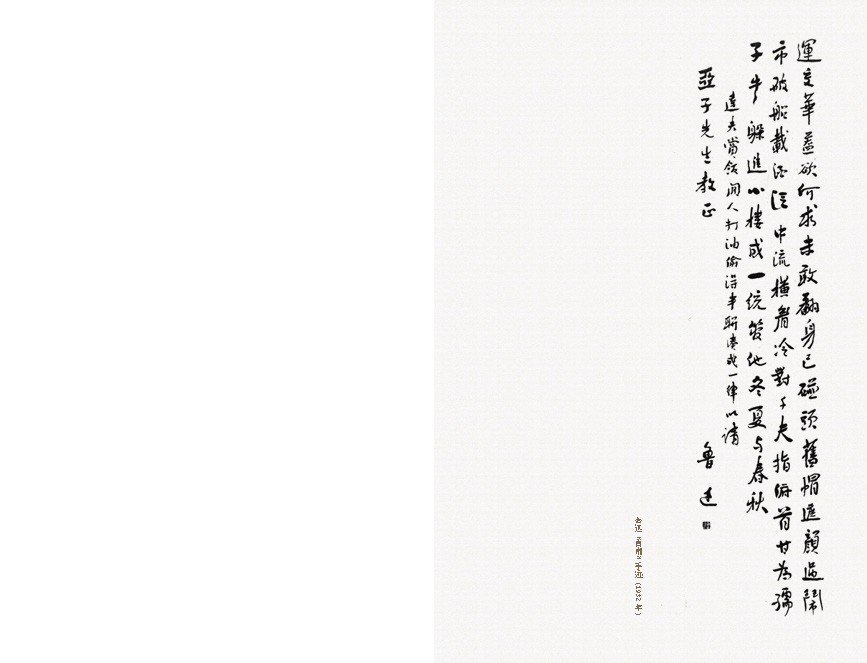 運交華蓋欲何求未敢翻身已碰頭舊帽遮顏過鬧
市破船載酒泛中流橫眉冷對千夫指俯首甘為孺
子牛躲進小樓成一統管他冬夏与春秋
達夫賞飯閒人打油偷得半聯湊成一律以請
亞子先生教正
魯迅
鲁迅《自嘲》手迹（1932年）